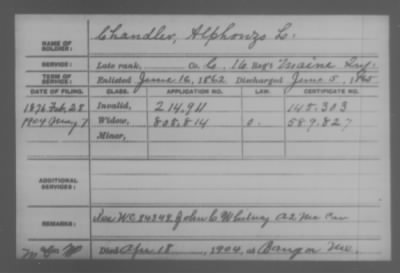 NAME OF SOLDIER: Chandler, Alphonzo L.
SERVICE: Late rank, Co. C, 16 Reg't Maine Inf.
TERM OF SERVICE: Enlisted June 16, 1862 Discharged June 5, 1865
DATE OF FILING. CLASS. APPLICATION NO. LAW. CERTIFICATE NO.
1876 Feb. 28 Invalid, 214,911 148,303
1904 May 7 Widow, 808,814 0. 589,827
Minor,
ADDITIONAL SERVICES:
REMARKS: See WC 84348 John C Whitney A 2 Me Cav
Died Apr 18, 1904, at Bangor Me.